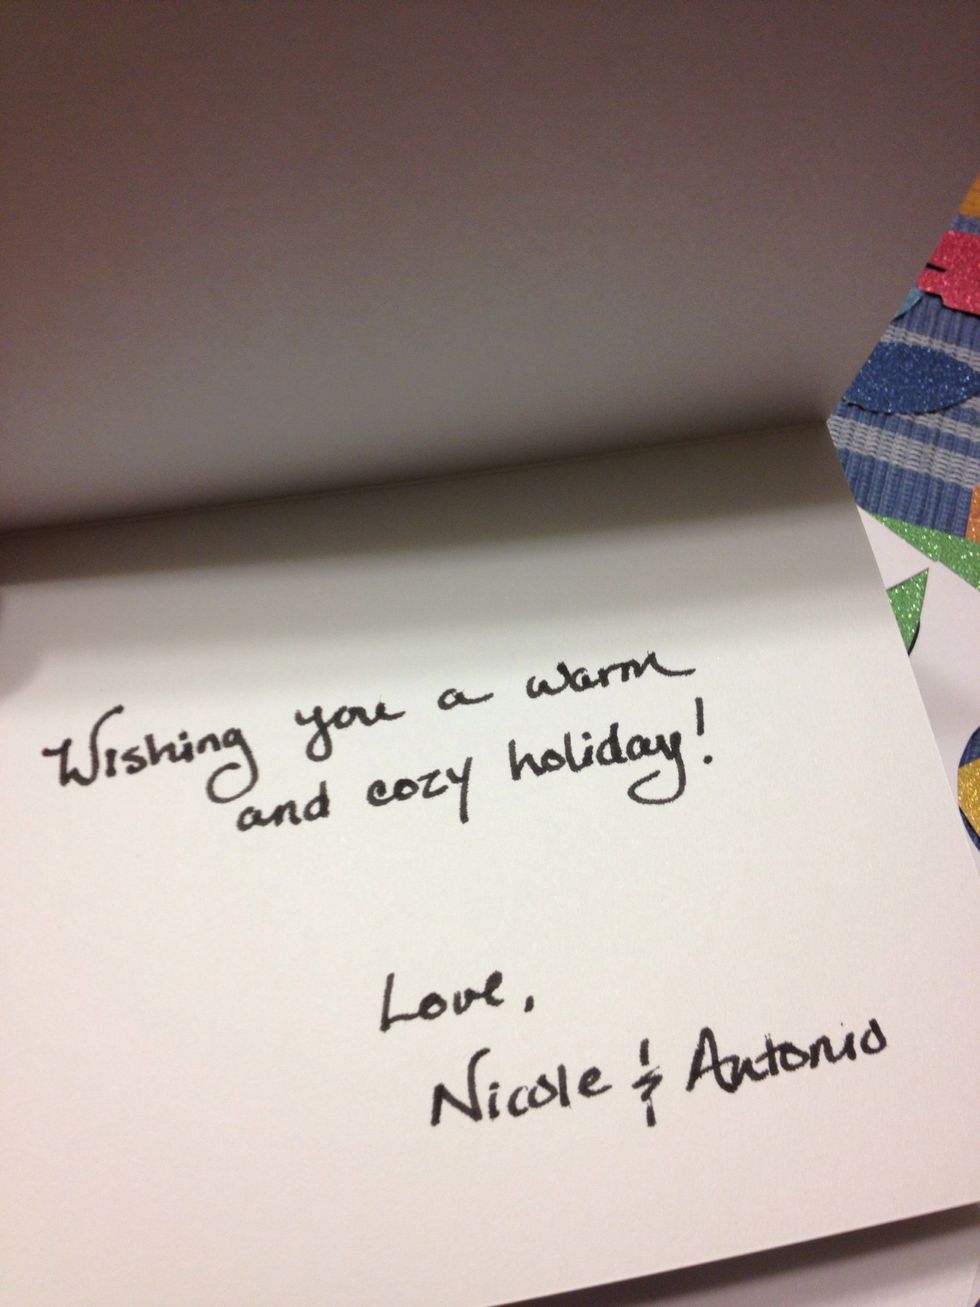 Wishing you a warm
and cozy holiday!
Love,
Nicole & Antonio